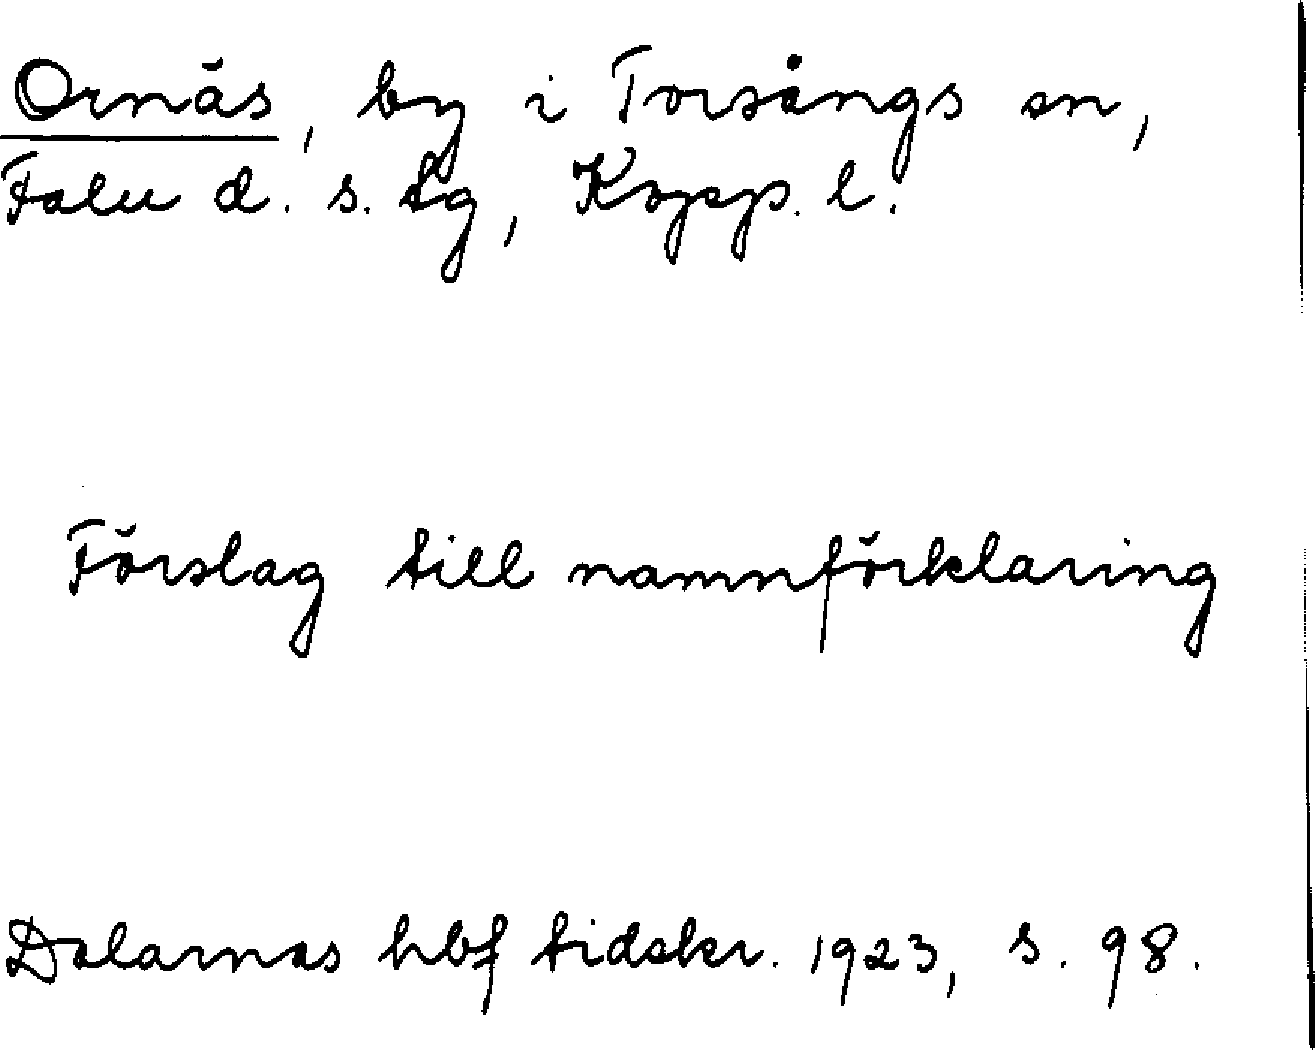 Ornäs, by i Torsångs sn,
Falu d. s. tg, Kopp. l.
Förslag till namnförklaring
Dalarnas hbf tidskr. 1923, s. 98.